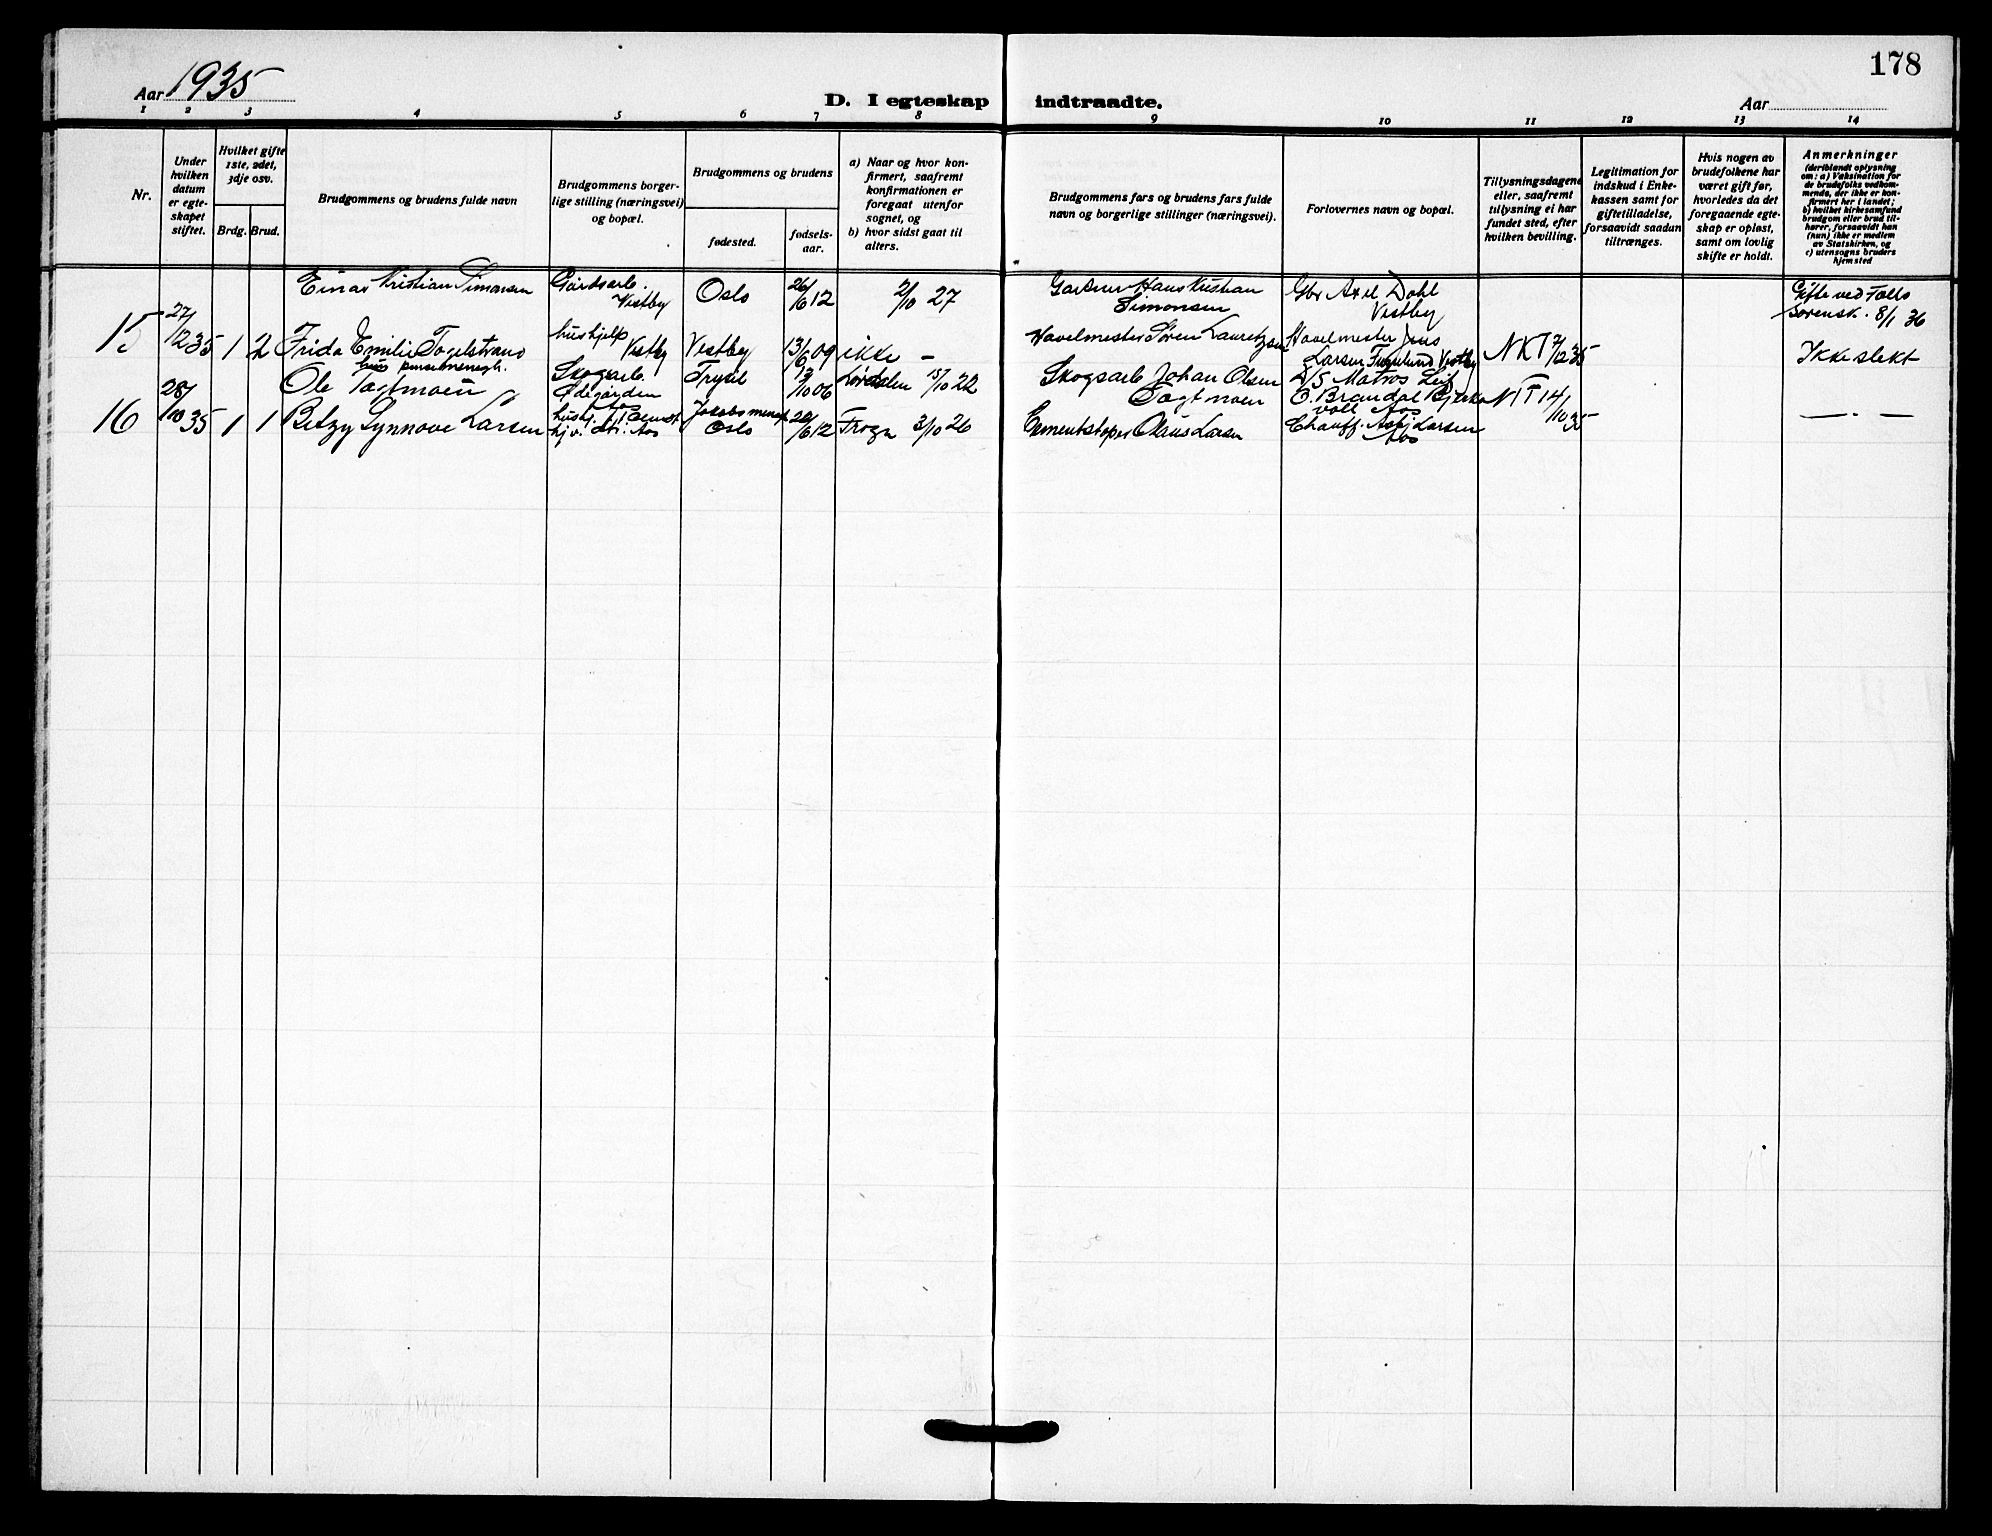 178
Aar 1935
D. I egteskap indtraadte.
Aar
1 2 3 4 5 6 7 8 9 10 11 12 13 14
Nr.
Under
hvilken
datum
er egte-
skapet
stiftet.
Hvilket gifte
1ste, 2det,
3dje osv.
Brdg. Brud.
Brudgommens og brudens fulde navn
Brudgommens borger-
lige stilling (næringsvei)
og bopæl.
Brudgommens og brudens
fødested.
fødsels-
aar.
a) Naar og hvor kon-
firmert, saafremt
konfirmationen er
foregaat utenfor
sognet, og
b) hvor sidst gaat til
alters.
Brudgommens fars og brudens fars fulde
navn og borgerlige stillinger (næringsvei).
Forlovernes navn og bopæl.
Tillysningsdagene
eller, saafremt
tillysning ei har
fundet sted, efter
hvilken bevilling.
Legitimation for
indskud i Enke-
kassen samt for
giftetilladelse,
forsaavidt saadan
tiltrænges.
Hvis nogen av
brudefolkene har
været gift før,
hvorledes da det
foregaaende egte-
skap er opløst,
samt om lovlig
skifte er holdt.
Anmerkninger
(deriblandt oplysning
om: a) Vaksination for
de brudefolks vedkom-
mende, der ikke er kon-
firmert her i landet;
b) hvilket kirkesamfund
brudgom eller brud til-
hører, forsaavidt han
(hun) ikke er medlem
av Statskirken, og
c) utensogns bruders
hjemsted
15
27/12 35
1 2
Einar Kristian Simonsen
Gårdsarb.
Vestby
Oslo
26/6 12
2/10 27
Gartner Hans Kristian
Simonsen
Gbr Axel Dahl
Vestby
Gifte ved Follo
Sorensk. 8/1 36
Frida Emilie Fogelstrand
hushjelp
Vestby
Vestby
13/6 09
ikke –
Havelmester Søren Lauretzsen
Havelmester Jens
Larsen Vestby
NKT 7/12 35
Ikke slekt
16
28/10 35
1 1
Ole Tagtmoen
Skogsarb.
Ødegården
Aas
Trysil
/10 06
15/10 22
Skogsarb Johan Olsen
Tagtmoen
D/S Matros Leif
E. Brandal
Aas
NTT 14/10 35
— . —
Betzy Synnøve Larsen
hushj.
Aas
Jakobs menigh
Oslo
/6 12
Frogn 3/10 26
Cementstøper Olaus Larsen
Chauff. Larsen
Aas